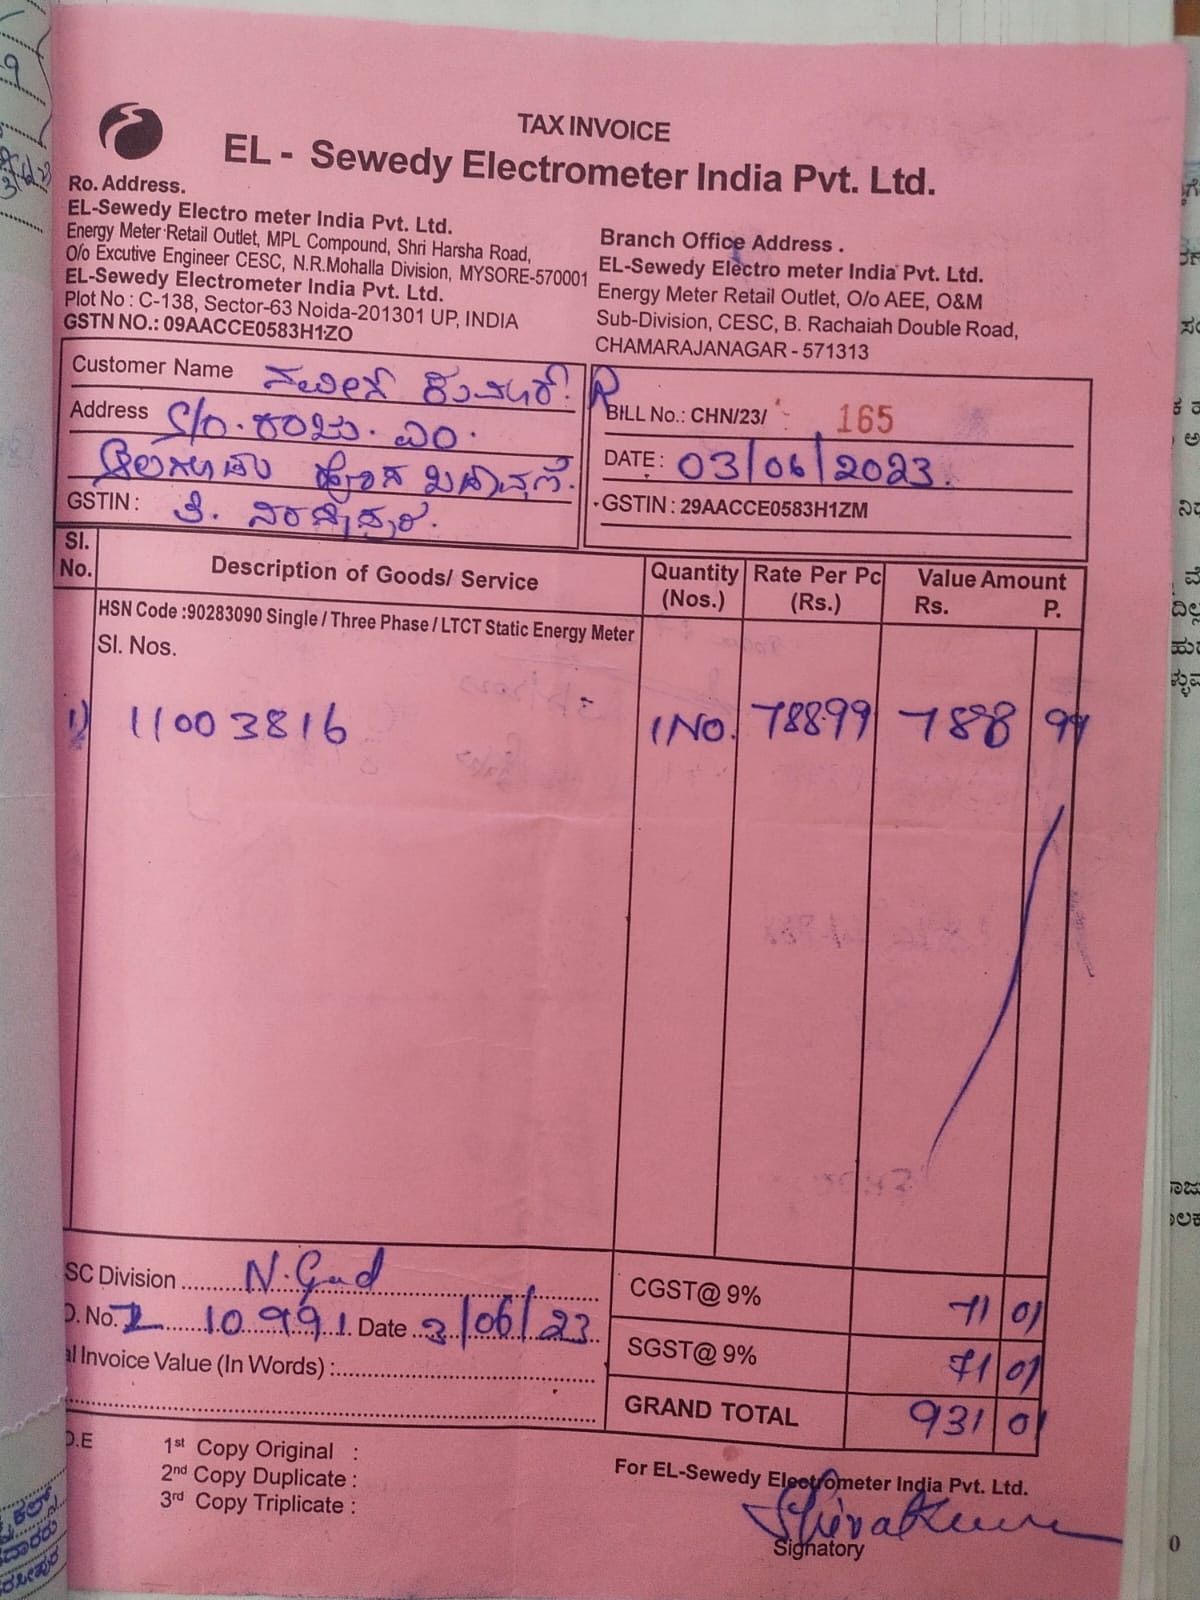 TAX INVOICE
EL - Sewedy Electrometer India Pvt. Ltd.
Ro. Address.
EL-Sewedy Electro meter India Pvt. Ltd.
Energy Meter Retail Outlet, MPL Compound, Shri Harsha Road,
O/o Excutive Engineer CESC, N.R.Mohalla Division, MYSORE-570001
EL-Sewedy Electrometer India Pvt. Ltd.
Plot No : C-138, Sector-63 Noida-201301 UP, INDIA
GSTN NO.: 09AACCE0583H1ZO
Branch Office Address .
EL-Sewedy Electro meter India Pvt. Ltd.
Energy Meter Retail Outlet, O/o AEE, O&M
Sub-Division, CESC, B. Rachaiah Double Road,
CHAMARAJANAGAR - 571313
Customer Name ನವೀನ್ ಕುಮಾರ್. R
Address S/O. ಕೆಂಚು. ಎಂ.
ಹೊಸ ಬಡಾವಣೆ.
GSTIN : ತಿ. ನರಸೀಪುರ.
BILL No.: CHN/23/ 165
DATE : 03/06/2023.
GSTIN : 29AACCE0583H1ZM
Sl. No. Description of Goods/ Service Quantity (Nos.) Rate Per Pc (Rs.) Value Amount Rs. P.
HSN Code :90283090 Single / Three Phase / LTCT Static Energy Meter
Sl. Nos.
1) 11003816 1NO. 788.99 788 99
SC Division N. Gud
O. No. 10991. Date 3/06/23
al Invoice Value (In Words) :
CGST@ 9% 71 01
SGST@ 9% 71 01
GRAND TOTAL 931 01
O.E
1st Copy Original :
2nd Copy Duplicate :
3rd Copy Triplicate :
For EL-Sewedy Electrometer India Pvt. Ltd.
Shivakumar
Signatory